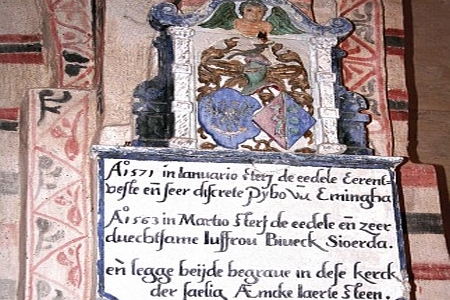 Aº 1571 in Ianuario sterf de eedele Eerent-
veste en̄ seer discrete Pÿbo vā Emingha
Aº 1563 in Martio sterf de eedele en̄ zeer
duechtsame Iuffrou Biueck Sioerda.
en̄ legge beijde begraue in dese kerck
der saelig Æmcke laerte steen.